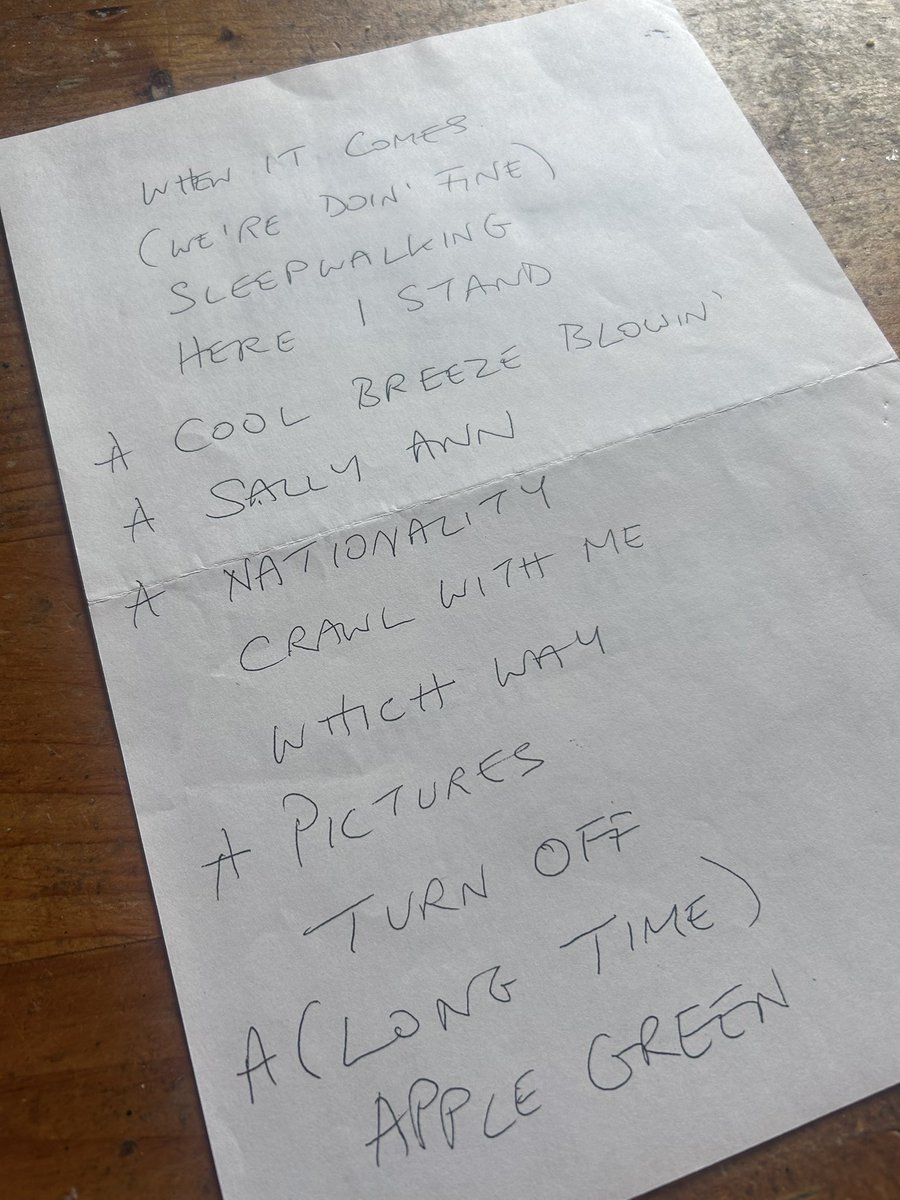 WHEN IT COMES
(WE'RE DOIN' FINE)
SLEEPWALKING
HERE I STAND
A COOL BREEZE BLOWIN'
A SALLY ANN
A NATIONALITY
CRAWL WITH ME
WHICH WAY
A PICTURES
TURN OFF
A (LONG TIME)
APPLE GREEN.